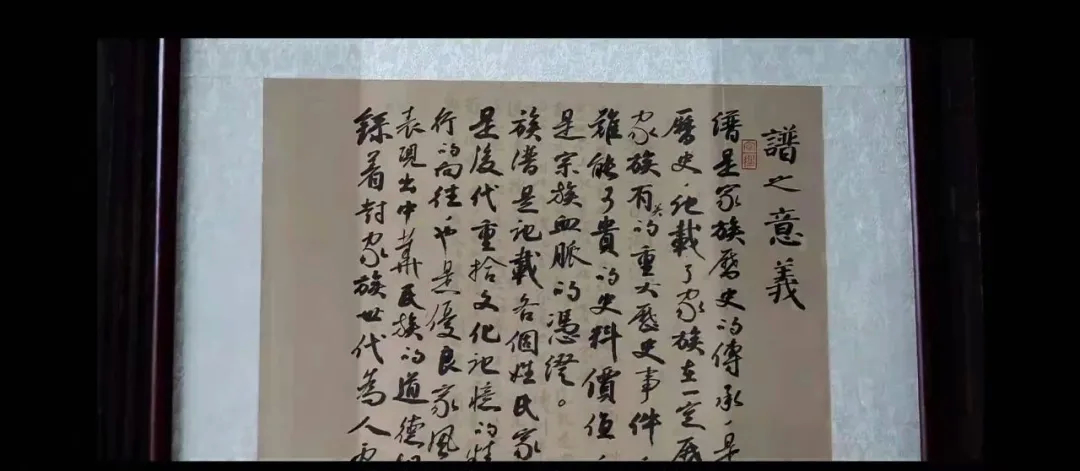 譜之意義
譜是家族歷史的傳承,是
歷史,記載了家族在一定歷
家族有关的重大歷史事件
難能可貴的史料價值
是宗族血脈的憑證。
族譜是記載各個姓氏家
是後代重拾文化記憶的精
行的向往,也是優良家風
表現出中華民族的道德
録着對家族世代為人處